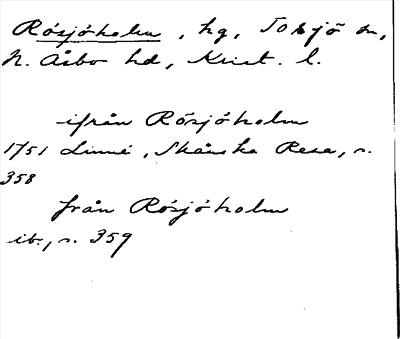 Rösjöholm, hg, Tosjö sn,
N. Åsbo hd, Krist. l.
ifrån Rösjöholm
1751 Linné, Skånska Resa, s.
358
från Rösjöholm
ib., s. 359